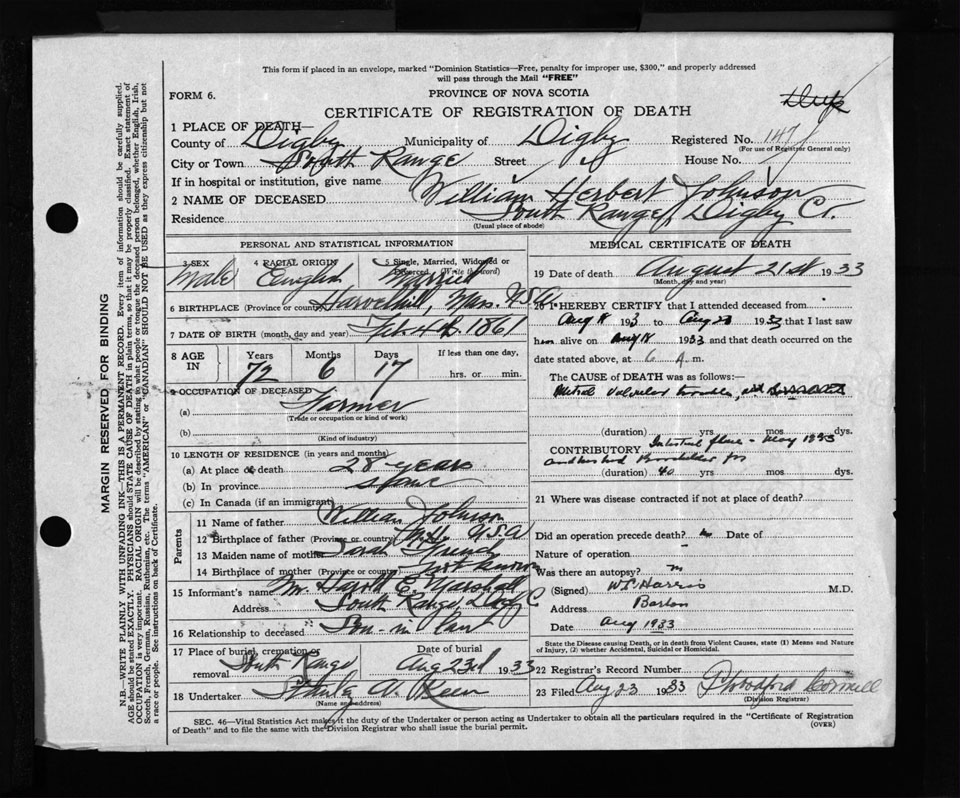 This form if placed in an envelope, marked "Dominion Statistics—Free, penalty for improper use, $300," and properly addressed
will pass through the Mail "FREE"
FORM 6.
PROVINCE OF NOVA SCOTIA
CERTIFICATE OF REGISTRATION OF DEATH
1 PLACE OF DEATH—
County of Digby Municipality of Digby Registered No. 147
(For use of Registrar General only)
City or Town South Range Street House No.
If in hospital or institution, give name
2 NAME OF DECEASED William Herbert Johnson
Residence South Range, Digby Co.
(Usual place of abode)
PERSONAL AND STATISTICAL INFORMATION
3 SEX 4 RACIAL ORIGIN 5 Single, Married, Widowed or Divorced (Write the word)
Male English Married
6 BIRTHPLACE (Province or country) Mass. USA
7 DATE OF BIRTH (month, day and year) Feb 4th 1861
8 AGE IN Years Months Days If less than one day,
72 6 17 hrs. or min.
9 OCCUPATION OF DECEASED
(a) Farmer
(Trade or occupation or kind of work)
(b)
(Kind of industry)
10 LENGTH OF RESIDENCE (in years and months)
(a) At place of death 28 years
(b) In province same
(c) In Canada (if an immigrant)
Parents
11 Name of father William Johnson
12 Birthplace of father (Province or country) N.H. USA
13 Maiden name of mother Sarah French
14 Birthplace of mother not known
15 Informant's name Mr Harold E. Marshall
Address South Range, Digby C
16 Relationship to deceased Son-in law
17 Place of burial, cremation or removal Date of burial
South Range Aug 23rd 1933
18 Undertaker
(Name and address)
MEDICAL CERTIFICATE OF DEATH
19 Date of death August 21st 1933
(Month, day and year)
20 I HEREBY CERTIFY that I attended deceased from
Aug 18 1933 to Aug 20 1933 that I last saw
him alive on Aug 18 1933 and that death occurred on the
date stated above, at 6 A m.
The CAUSE OF DEATH was as follows:
Mitral Valvular trouble,
(duration) yrs mos dys.
CONTRIBUTORY May 1933
(duration) 40 yrs. mos. dys.
21 Where was disease contracted if not at place of death?
Did an operation precede death? no Date of
Nature of operation
Was there an autopsy? no
(Signed) Harris M.D.
Address Barton
Date Aug 1933
State the Disease causing Death, or in death from Violent Causes, state (1) Means and Nature
of Injury, (2) whether Accidental, Suicidal or Homicidal.
22 Registrar's Record Number
23 Filed Aug 23 1933
(Division Registrar)
SEC. 46—Vital Statistics Act makes it the duty of the Undertaker or person acting as Undertaker to obtain all the particulars required in the "Certificate of Registration
of Death" and to file the same with the Division Registrar who shall issue the burial permit.
(OVER)
MARGIN RESERVED FOR BINDING
N.B.—WRITE PLAINLY WITH UNFADING INK—THIS IS A PERMANENT RECORD. Every item of information should be carefully supplied.
AGE should be stated EXACTLY. PHYSICIANS should STATE CAUSE OF DEATH in plain terms, so that it may be properly classified. Exact statement of
OCCUPATION is very important. RACIAL ORIGIN will be described by stating to what people or tongue the deceased person belonged, whether English, Irish,
Scotch, French, German, Russian, Ruthenian, etc. The terms "AMERICAN" or "CANADIAN" SHOULD NOT BE USED as they express citizenship but not
a race or people. See instructions on back of Certificate.